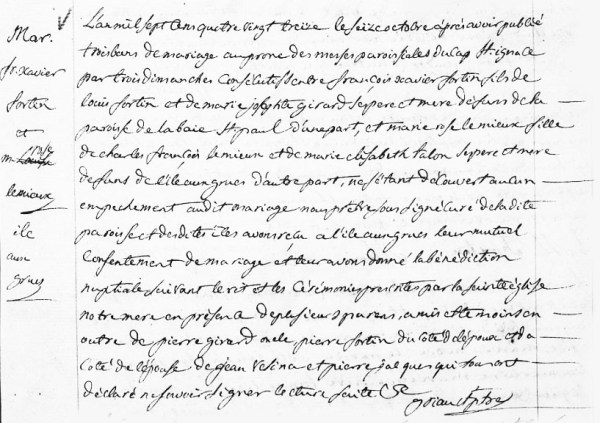 Mar.
fr. xavier
fortin
et
m. rose
lemieux
ile
aux
grues
L'an mil sept cens quatre vingt treize le seize octobre après avoir publié
trois bans de mariage au prone des messes paroissiales du Cap St ignace
par trois dimanches Consécutifs entre françois xavier fortin fils de
louis fortin et de marie josephte girard ses pere et mere defuns de la
paroisse de la baie St. paul d'une part, et marie rose le mieux fille
de charles françois lemieux et de marie elisabeth talon ses pere et mere
defuns de l'ile aux grues d'autre part, ne s'étant découvert aucun
empechement audit mariage nous prêtre sous signé Curé de la dite
paroisse et desdites iles avons recu a l'ile aux grues leur mutuel
Consentement de mariage et leur avons donné la bénédiction
nuptiale suivant le rit et les Cérémonies prescrites par la sainte église
notre mere en présence de plusieurs parens, amis et témoins en
outre de pierre girard oncle pierre fortin du Coté de l'époux et du
Coté de l'épouse de jean Vesina et pierre jacques qui tous ont
déclaré ne savoir signer lecture faite